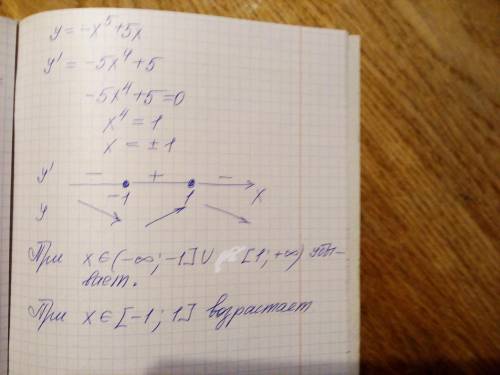 y = -x⁵+5x
y' = -5x⁴+5
-5x⁴+5=0
x⁴ = 1
x = ±1
y' - + -
-1 1 x
y
При x∈(-∞; -1]∪ [1; +∞) убы-
вает.
При x∈[-1; 1] возрастает